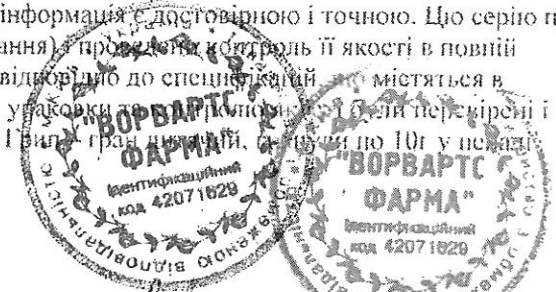 інформація є достовірною і точною. Цю серію п
ання) і проведено контроль її якості в повній
відповідно до специфікацій, що містяться в
упаковки та були перевірені і
по 10г у пеналі
"ВОРВАРТС
ФАРМА"
Ідентифікаційний
код 42071629
відповідальністю
"ВОРВАРТС
ФАРМА"
Ідентифікаційний
код 42071629